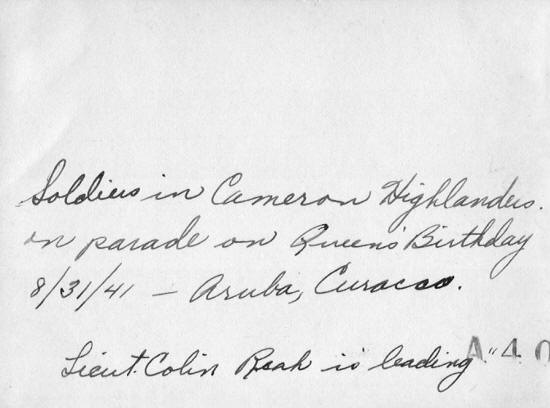 Soldiers in Cameron Highlanders.
on parade on Queen's Birthday
8/31/41 — Aruba, Curacao.
Lieut. Colin is leading "
A40